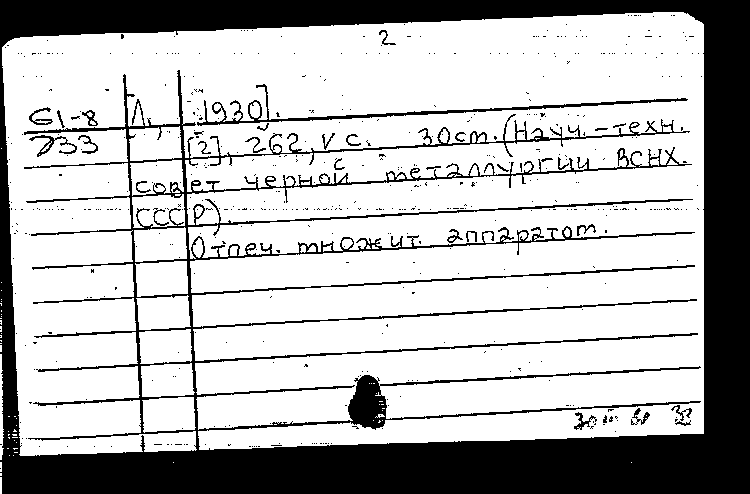 2
61-8 [Л., 1930].
733 [2], 262, V с. 30см. (Науч.-техн.
совет черной металлургии ВСНХ
СССР).
Отпеч. множит. аппаратом.